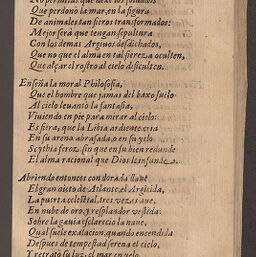 Que perdonò la mar, en la figura
De animales tan fieros transformados:
Mejor serà que tengan sepultura
Con los demas Arginos desdichados,
Que no que el alma en tal fiereza oculten,
Que alçar el rostro al cielo dificulten.
Enseña la moral Philosofia,
Que el hombre que jamas del baxo suelo
Al cielo leuantò la fantasia,
Viuiendo en pie para mirar al cielo:
Es fiera, que la Libia ardiente cria
En su arena abrasada, o en su yelo
Scythia feroz, sin que en su bien redunde
El alma racional que Dios le infunde.
Abriendo entonces con dorada llaue
El gran nieto de Atlante, el Argicida,
La puerta celestial, tres vezes aue,
En nube de oro, y resplandor vestida:
Sobre la gauia esclarecio la naue,
Qual suele exalacion, quando encendida
Despues de tempestad serena el cielo,
Y retrato su luz, el mar en yelo.